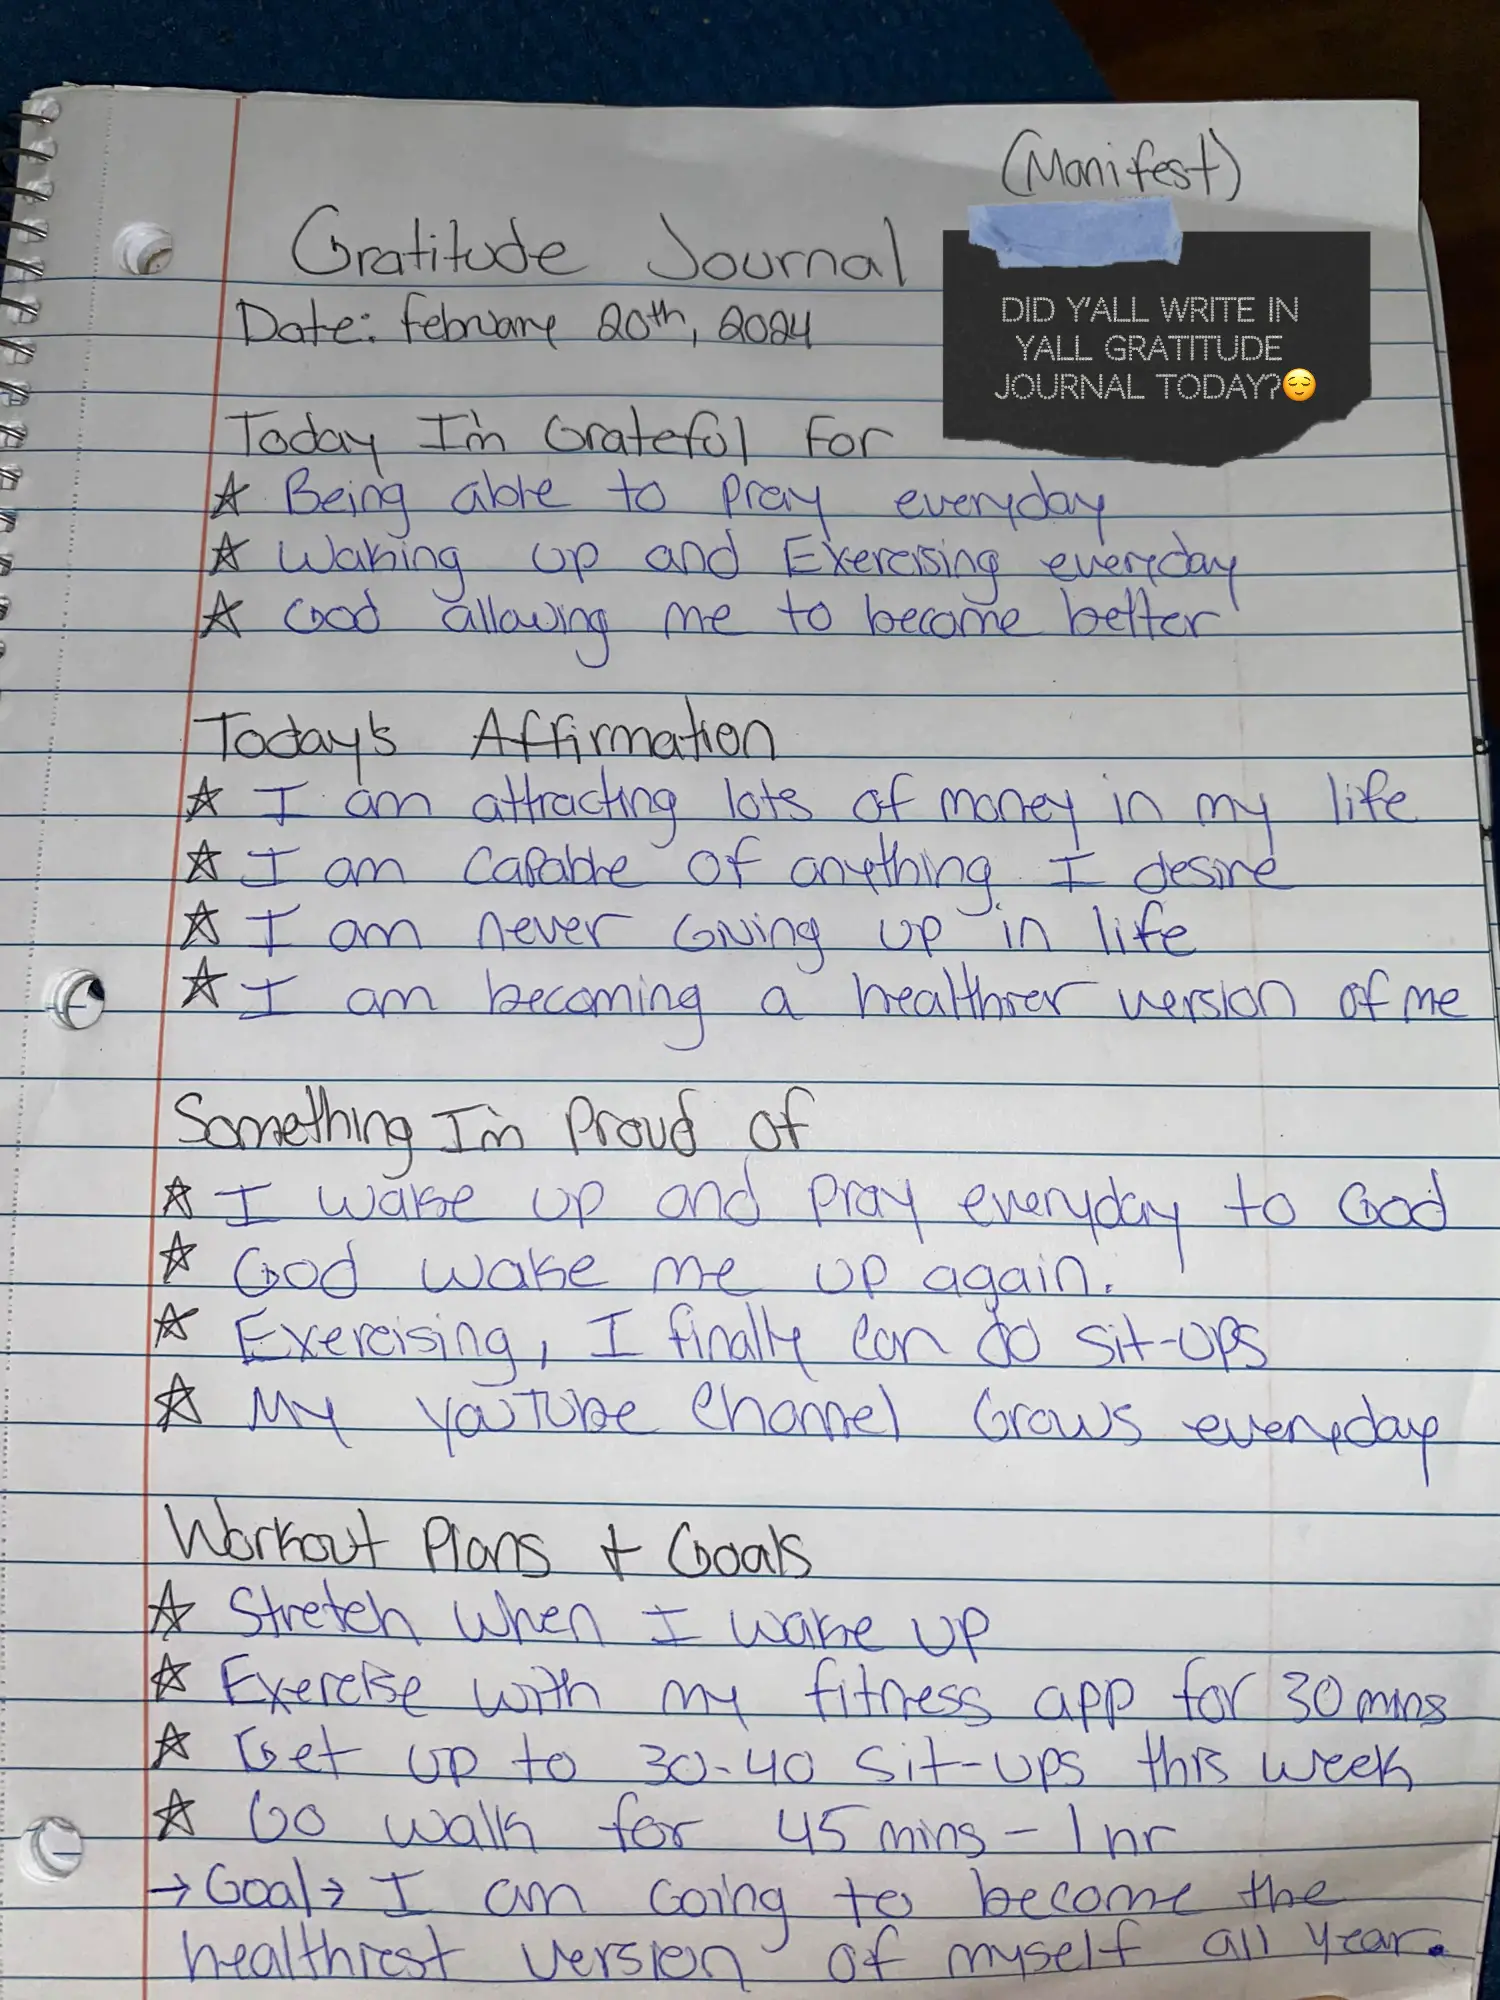 (Manifest)
Gratitude Journal
Date: February 20th, 2024
DID Y'ALL WRITE IN
YALL GRATITUDE
JOURNAL TODAY?😌
Today I'm Grateful For
☆ Being able to pray everyday
☆ Waking up and Exercising everyday
☆ God allowing me to become better
Today's Affirmation
☆ I am attracting lots of money in my life
☆ I am capable of anything I desire
☆ I am never Giving up in life
☆ I am becoming a healthier version of me
Something I'm Proud of
☆ I wake up and pray everyday to God
☆ God wake me up again.
☆ Exercising, I finally can do sit-ups
☆ My YouTube Channel Grows everyday
Workout Plans + Goals
☆ Stretch When I wake up
☆ Exercise with my fitness app for 30 mins
☆ Get up to 30-40 sit-ups this week
☆ Go walk for 45 mins - 1 hr
→ Goal → I am Going to become the
healthiest version of myself all year.